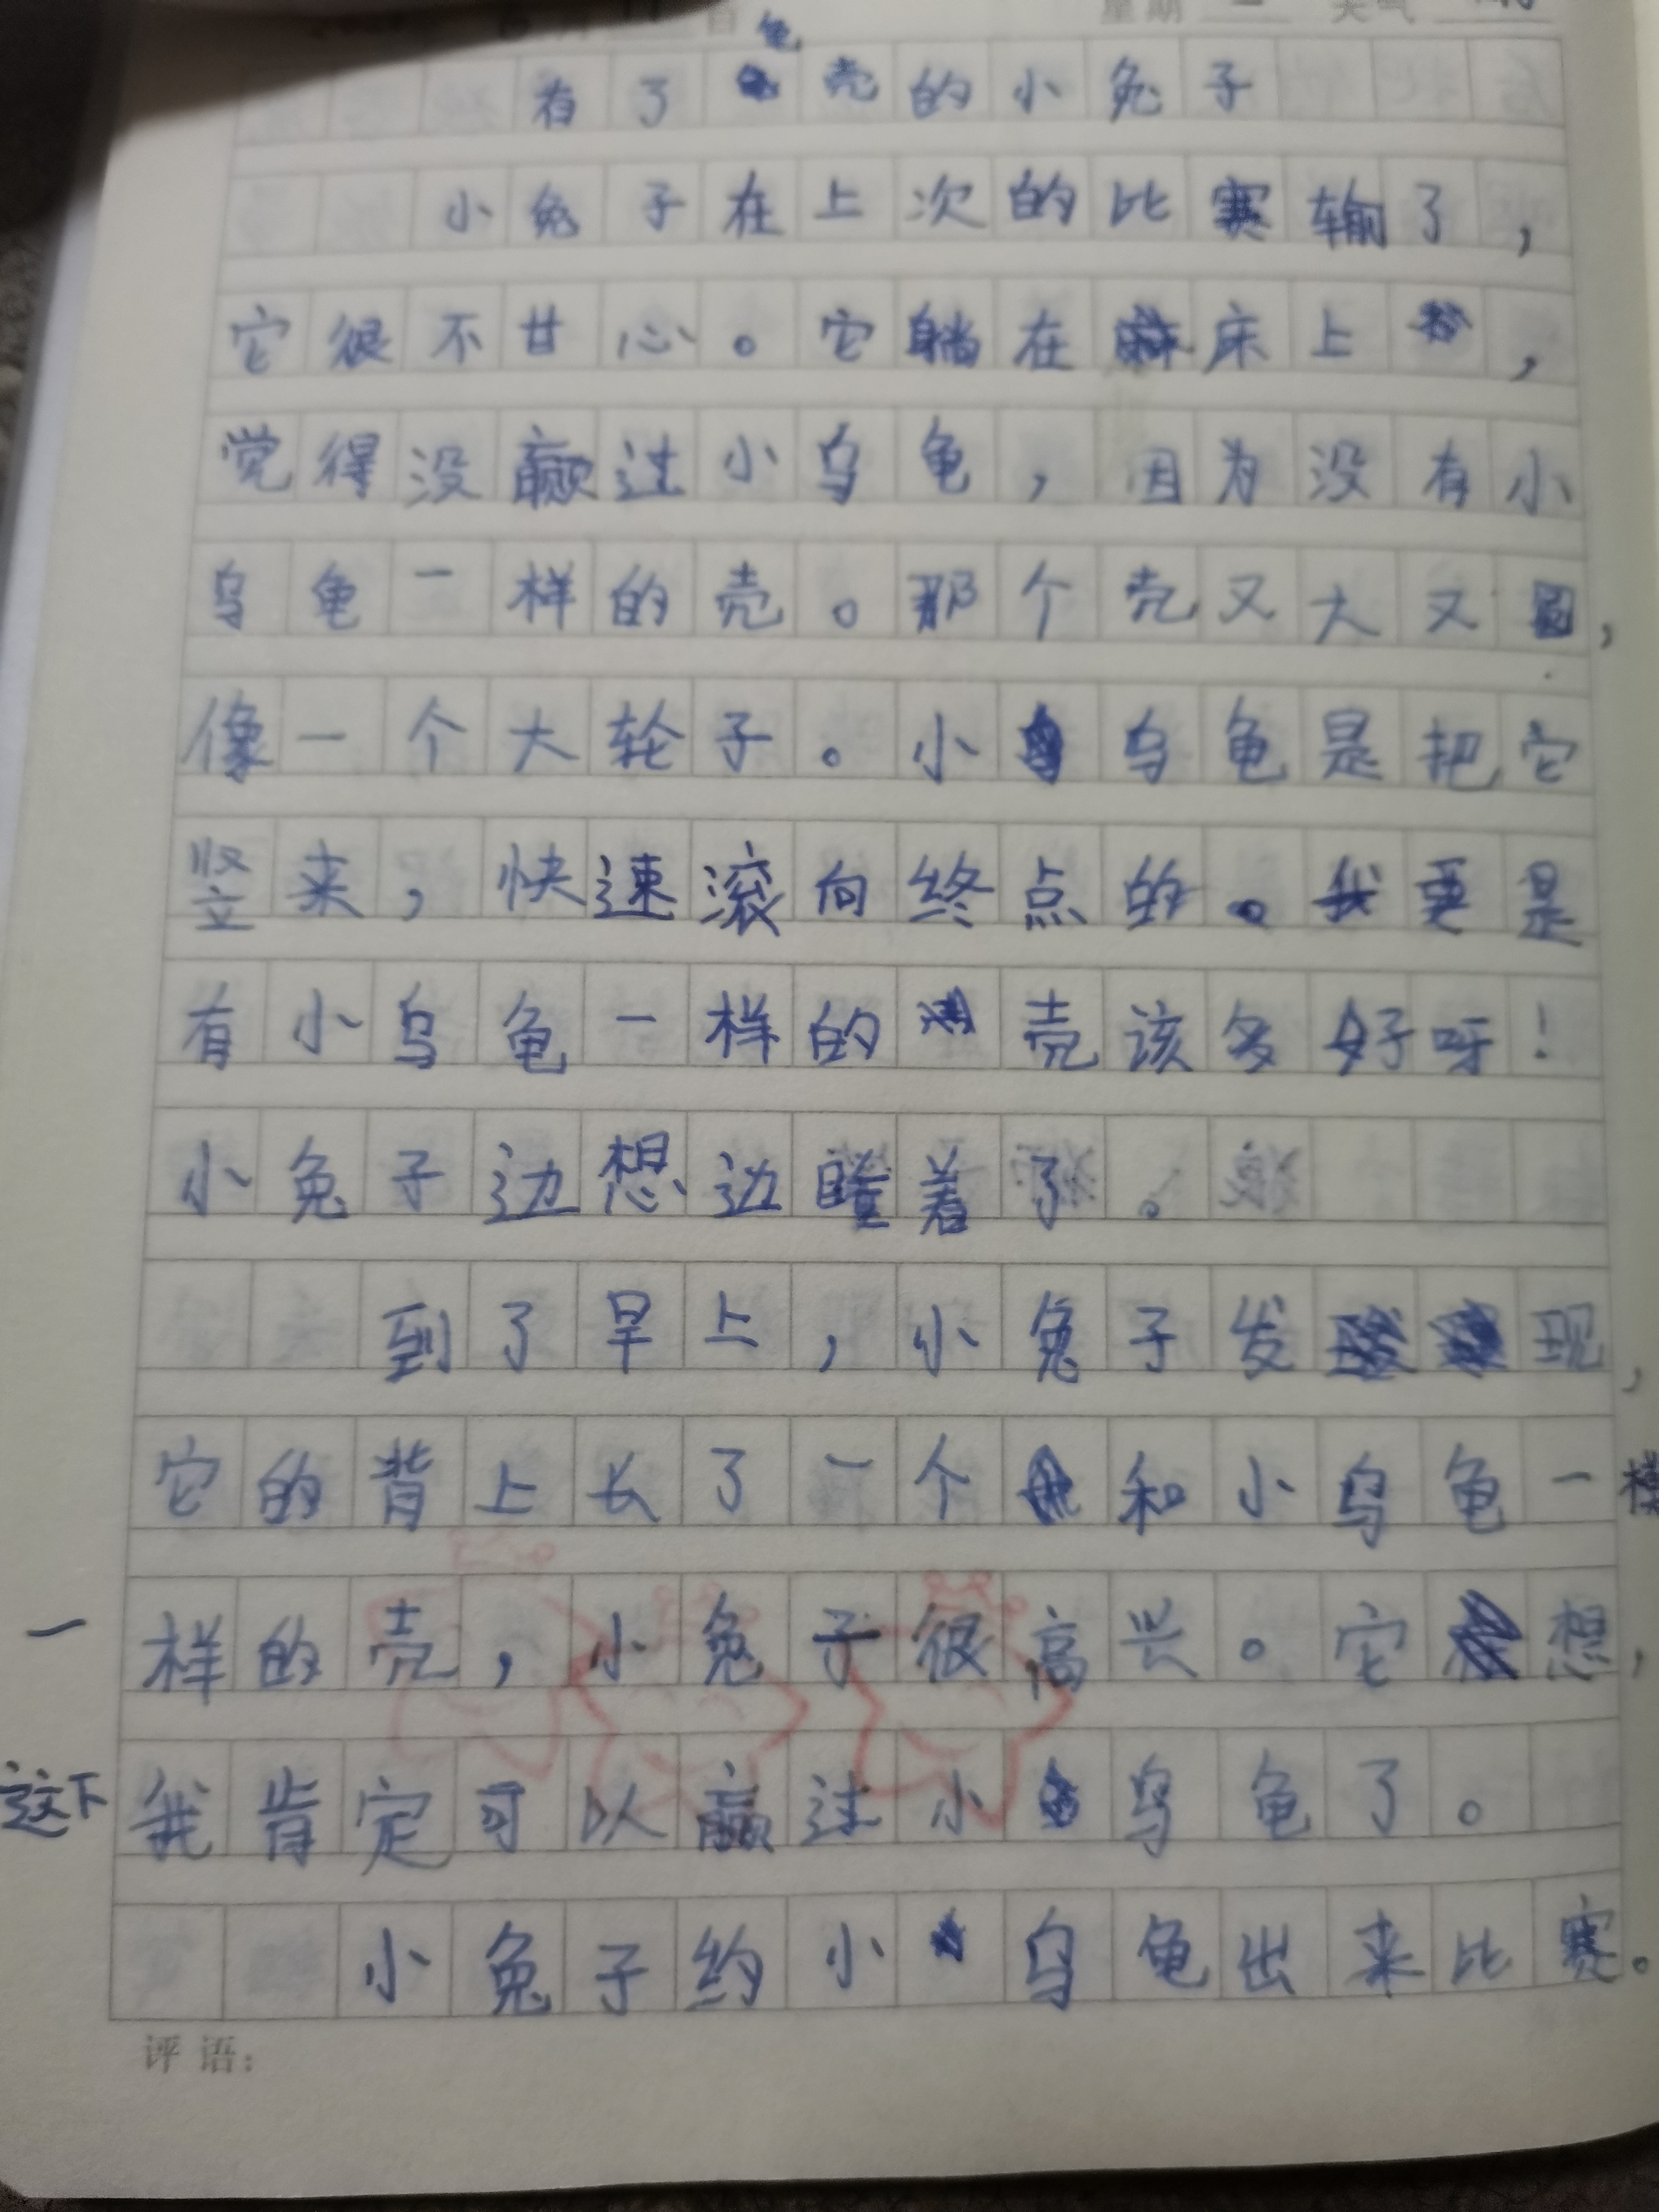 星期 一 天气
有了龟壳的小兔子
小兔子在上次的比赛输了，
它很不甘心。它躺在床上，
觉得没赢过小乌龟，因为没有小
乌龟一样的壳。那个壳又大又圆，
像一个大轮子。小乌龟是把它
竖来，快速滚向终点的。我要是
有小乌龟一样的壳该多好呀！
小兔子边想边睡着了。
到了早上，小兔子发现，
它的背上长了一个和小乌龟一样
一样的壳，小兔子很高兴。它想，
这下我肯定可以赢过小乌龟了。
小兔子约小乌龟出来比赛。
评语：